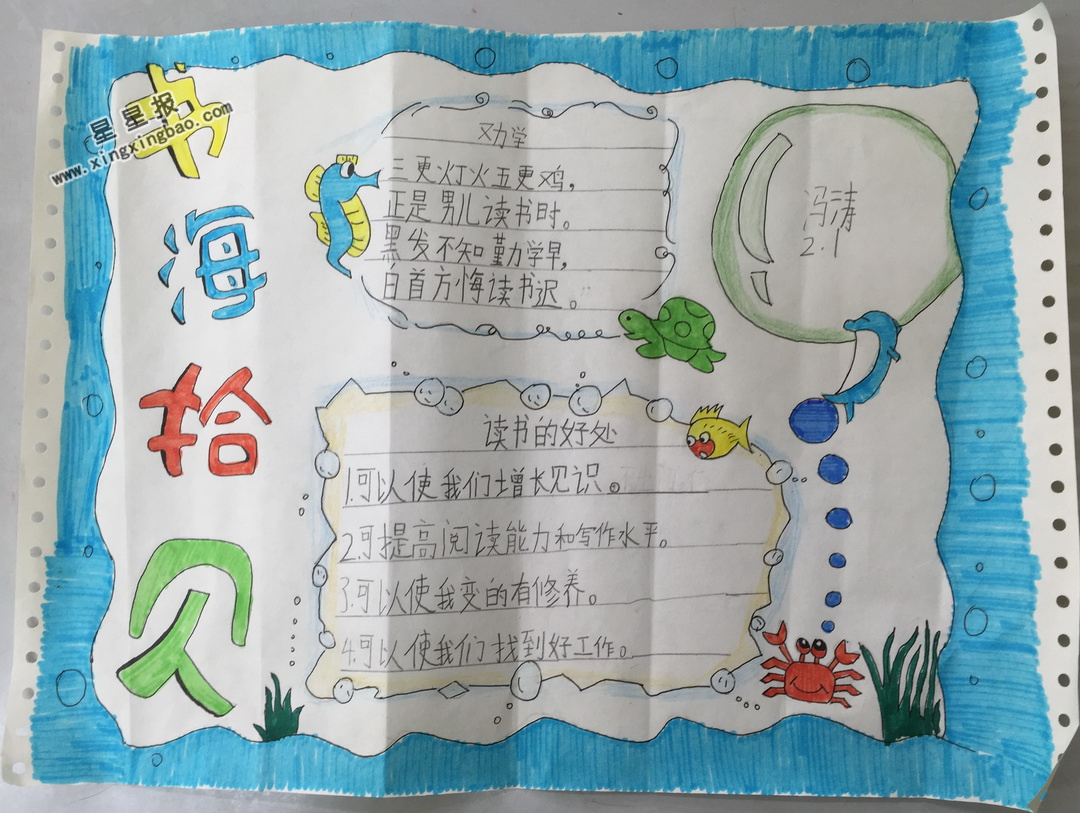 书海拾贝
星星报
www.xingxingbao.com
劝学
三更灯火五更鸡，
正是男儿读书时。
黑发不知勤学早，
白首方悔读书迟。
冯涛
2.1
读书的好处
1.可以使我们增长见识。
2.可提高阅读能力和写作水平。
3.可以使我变的有修养。
4.可以使我们找到好工作。